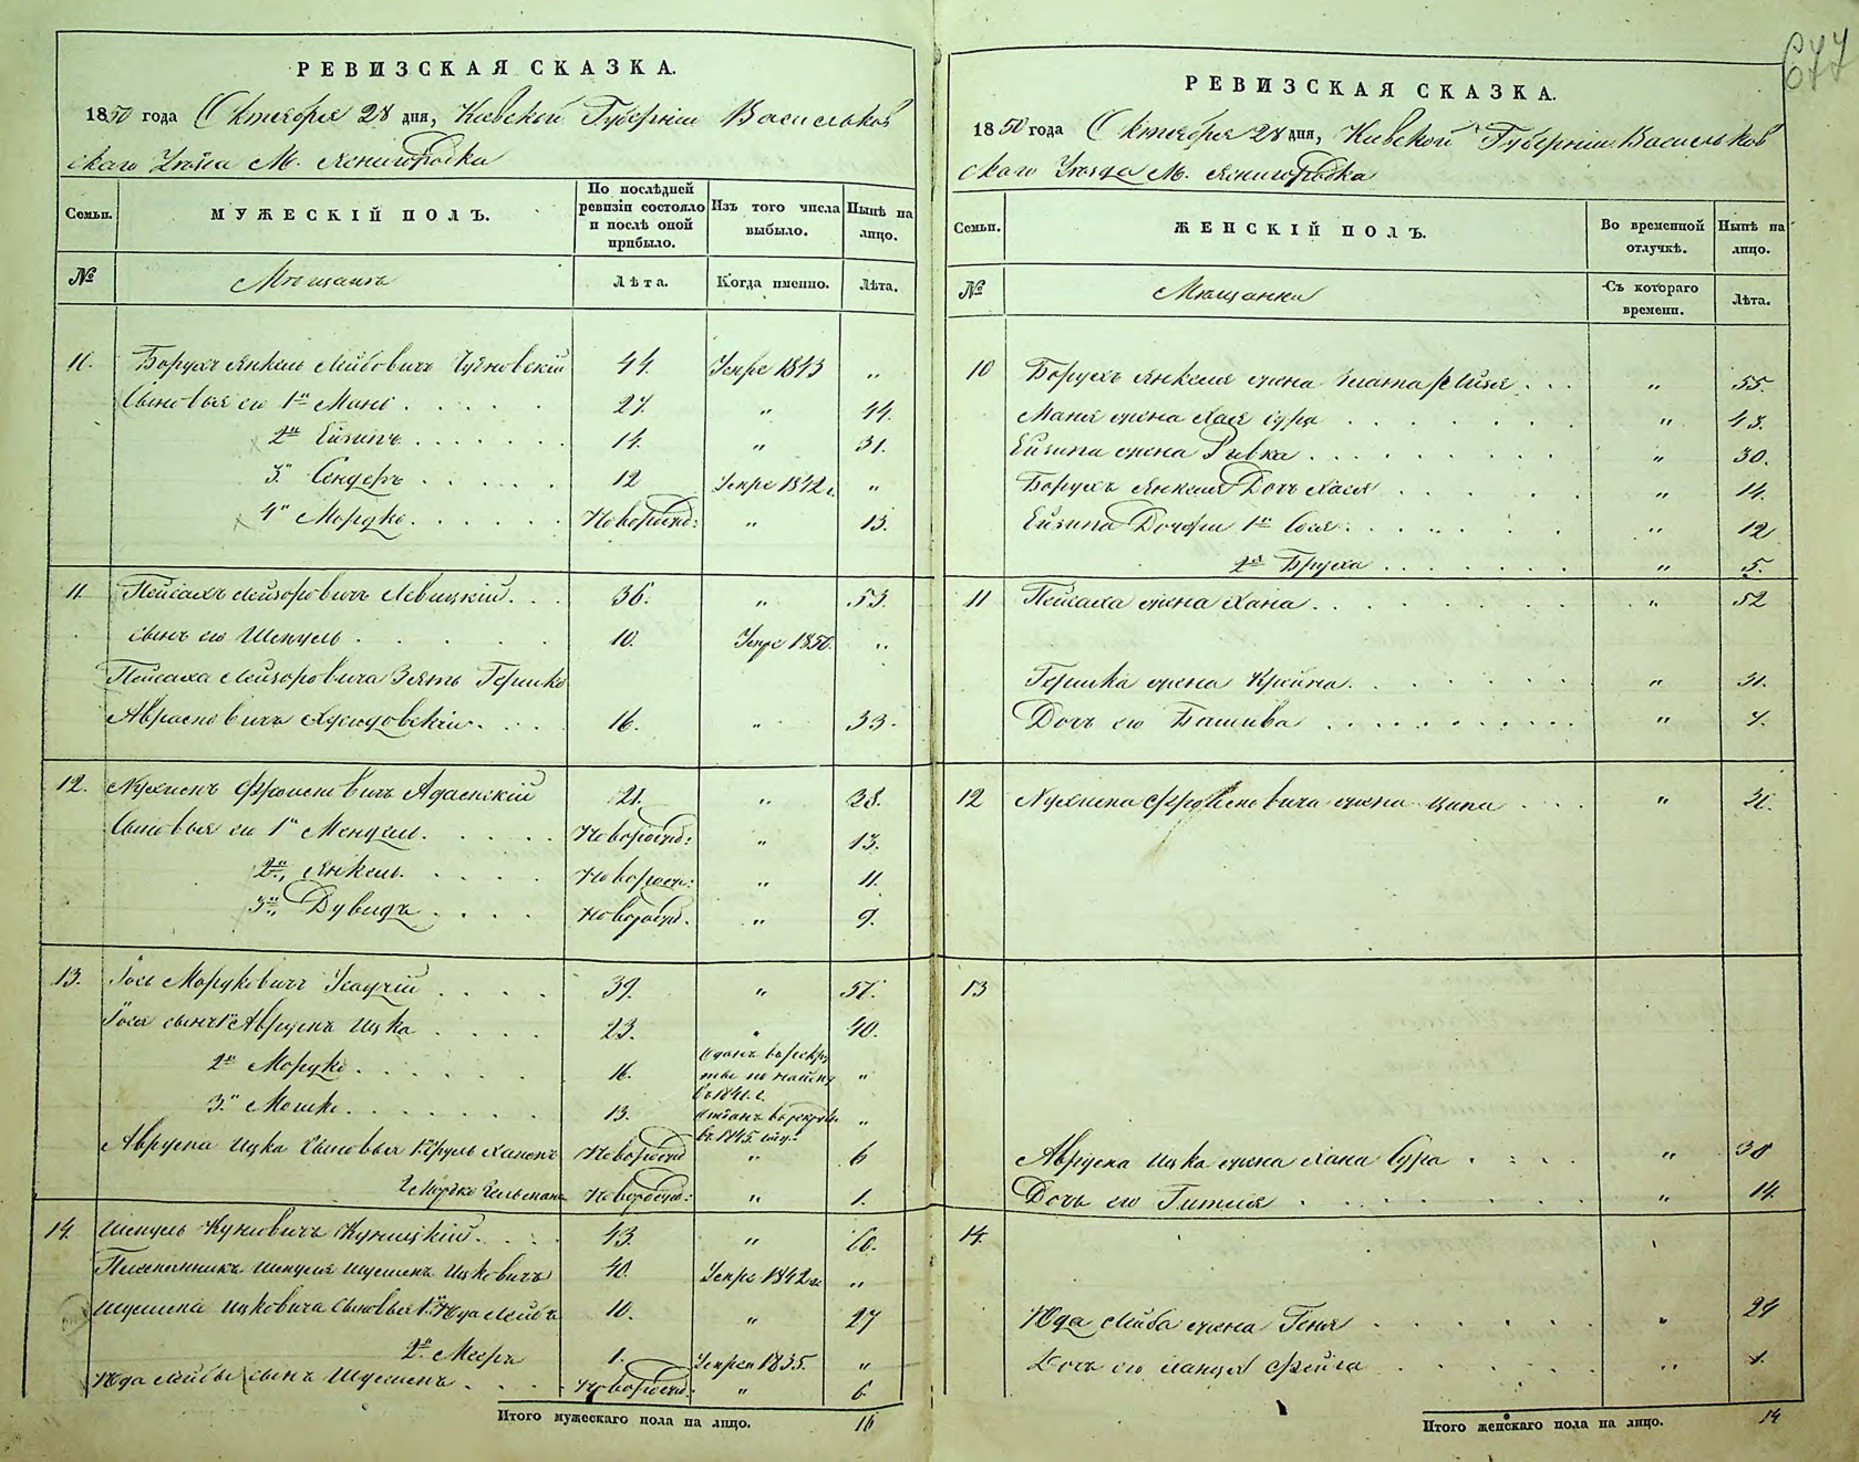 677
РЕВИЗСКАЯ СКАЗКА.
1850 года Октября 28 дня, Киевской Губерніи Васильков
скаго Уѣзда М. Ясногородка
Семьи.
МУЖЕСКІЙ ПОЛЪ.
По послѣдней ревизіи состояло и послѣ оной прибыло.
Изъ того числа выбыло.
Нынѣ на лицо.
№
Мѣщанъ
Лѣта.
Когда именно.
Лѣта.
10. Борухъ Янкель Лейбовичъ 44. Умре 1843 „
Сыновья его 1й Мане 27. „ 44.
2й Ейзипъ 14. „ 31.
3й Сендеръ 12 Умре 1842 г. „
4й Мордко Новорожд: „ 13.
11. Пейсахъ Лейзоровичъ Левицкій 36. „ 53.
сынъ его Шмуль 10. Умре 1850. „
Пейсаха Лейзоровича Зять Гершко
Аврамовичъ 16. „ 33.
12. Нухимъ Фроимовичъ Адамскій 21. „ 38.
Сыновья его 1й Мендель Новорожд: „ 13.
2й, Янкель Новорожд: „ 11.
3й, Дувидъ Новорожд. „ 9.
13. Іось Мордковичъ 39. „ 57.
Іося сынъ 1й Аврумъ Ицка 23. „ 40.
2й Мордко 16. Отданъ въ рекру
ты по найму
въ 1841 г. „
3й Мошко 13. Отданъ въ рекруты
въ 1845 году. „
Аврума Ицка Сыновья 1й Сруль Хаимъ Новорожд „ 6
2 Мордко Новорожд: „ 1.
14. Шмуль Куниовичъ Куницкій 43. „ 60.
Племянникъ Шмуля Шулимъ Ицковичъ 40. Умре 1842 г. „
Шулима Ицковича Сыновья 1й Юда Лейбъ 10. „ 27
2й Мееръ 1. Умре 1835. „
Юда Лейбы сынъ Шулимъ Новорожд: „ 6
Итого мужескаго пола на лицо. 16
РЕВИЗСКАЯ СКАЗКА.
1850 года Октября 28 дня, Киевской Губерніи Васильков
скаго Уѣзда М. Ясногородка
Семьи.
ЖЕНСКІЙ ПОЛЪ.
Во временной отлучкѣ.
Нынѣ на лицо.
№
Мѣщанки
Съ котораго времени.
Лѣта.
10 Борухъ Янкеля жена Злата Рейзя „ 55.
Маня жена Хая Сура „ 43.
Ейзипа жена Ривка „ 30.
Борухъ Янкеля Дочь Хася „ 14.
Ейзипа Дочери 1я Сося „ 12
2я Бруха „ 5.
11 Пейсаха жена Хана „ 52
Гершка жена Крейна „ 31.
Дочь его Башива „ 7.
12 Нухима Фроимовича жена Ципа „ 36.
13
Аврума Ицка жена Хана Сура „ 38
Дочь его Гитля „ 14.
14.
Юда Лейба жена Геня „ 29
Дочь его Фейга „ 1.
Итого женскаго пола на лицо. 14